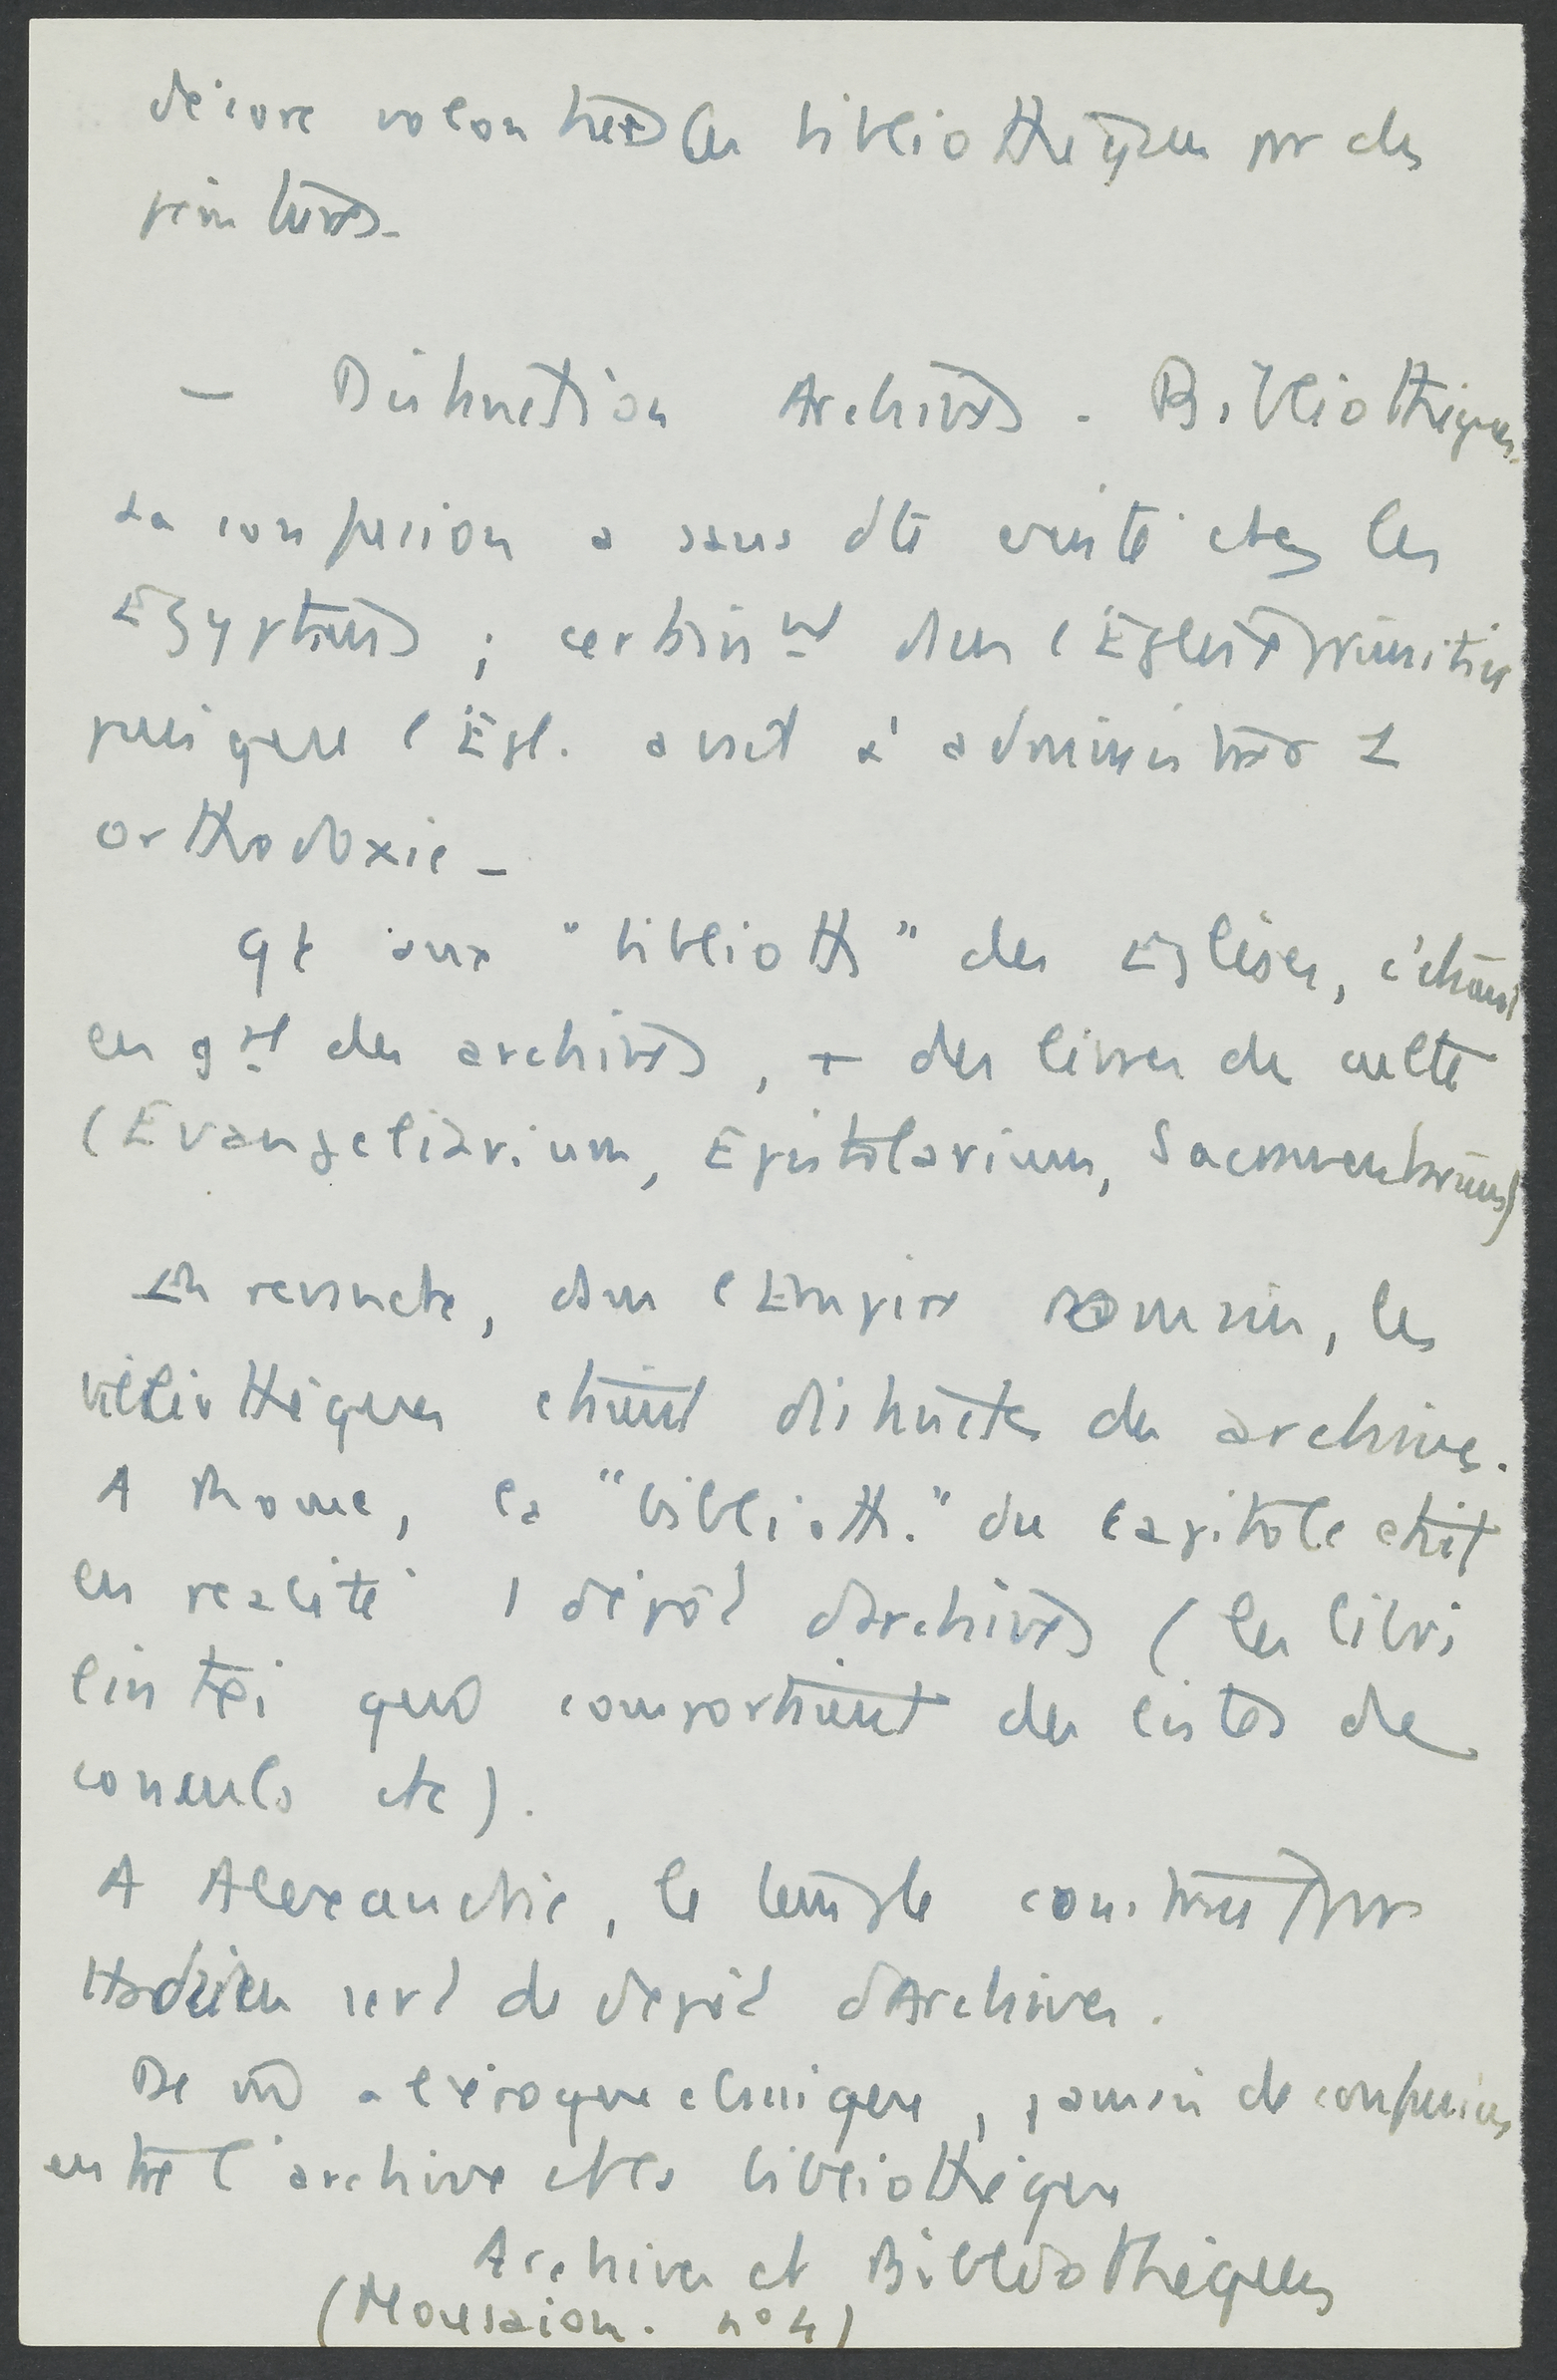 décore volontiers les bibliothèques par des
peintures.
— Distinction Archives. Bibliothèques.
La confusion a sans dte existé chez les
Egyptiens ; certainmt dans l'Eglise primitive
puisque l'Egl. avait à administrer 1
orthodoxie _
Qt aux "biblioth" des Eglises, c'étaient
en gal des archives, + des livres de culte
(Evangeliarium, Epistolarium, Sacramentarium)
En revanche, dans l'Empire romain, les
bibliothèques étaient distinctes des archives.
A Rome, la "biblioth." du Capitole était
en réalité 1 dépôt d'archives (les libri
lintei qui comportaient des listes de
consuls etc).
A Alexandrie, le temple construit par
Hadrien sert de dépôt d'Archives.
De à l'époque classique, jamais de confusion
entre l'archive et la bibliothèque
Archives et Bibliothèques
(Mousaion. n° 4)